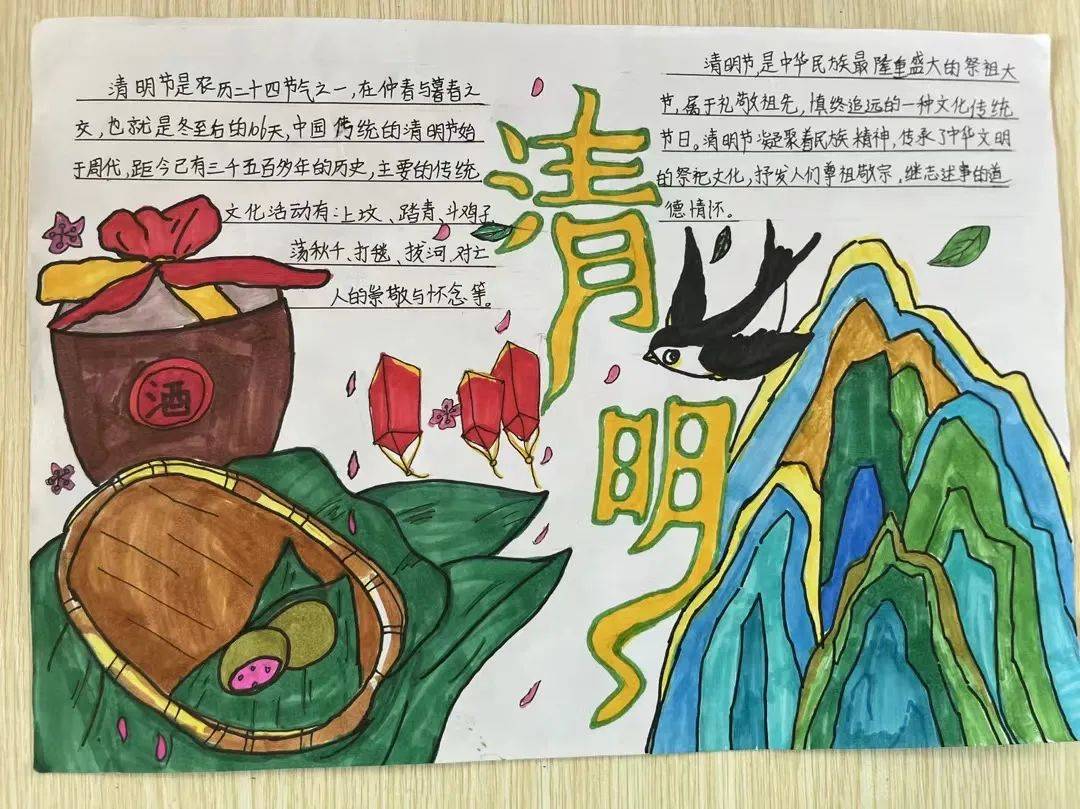 清明节是农历二十四节气之一,在仲春与暮春之
交,也就是冬至后的106天,中国传统的清明节始
于周代,距今已有三千五百多年的历史,主要的传统
文化活动有:上坟、踏青、斗鸡子、
荡秋千、打毯、拔河、对亡
人的崇敬与怀念等。
清明节,是中华民族最隆重盛大的祭祖大
节,属于礼敬祖先,慎终追远的一种文化传统
节日。清明节凝聚着民族精神,传承了中华文明
的祭祀文化,抒发人们尊祖敬宗,继志述事的道
德情怀。
清
明
酒